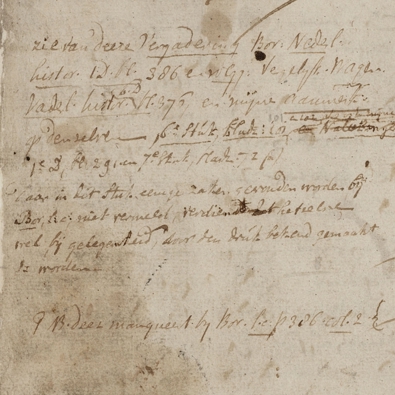 zie van deeze Vergadering Bor. Nederl.
histor. 1. D. bl. 386 en volgg. Vergelijk Wagen.
Vaderl. histor. bl. 376 en mijne
op denzelve 16e Stuk, bladz:
1e D, bl. 29, en 7e Stuk, bladz. 72
daar in dit Stuk eenige zaken gevonden worden bij
Bor, l.c. niet vermeld, verdiend hetzelve
wel bij gelegenheid, door den druk bekend gemaakt
te worden.
N B. deze manqueert by Bor. l.c. p 386 col. 2